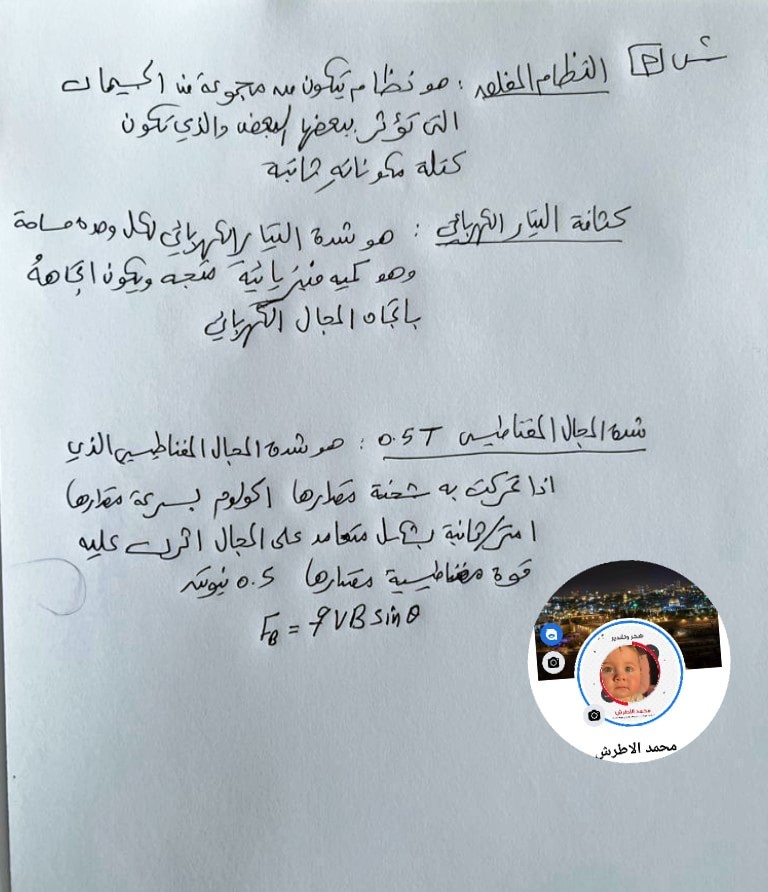 س P النظام المغلق : هو نظام يتكون من مجموعة من الجسيمات
التي تؤثر ببعضها البعض والذي تكون
كتلة مكوناته ثابتة
كثافة التيار الكهربائي : هو شدة التيار الكهربائي لكل وحدة مساحة
وهو كميه فيزيائية متجه ويكون اتجاههُ
باتجاه المجال الكهربائي
شدة المجال المغناطيسي 0.5T : هو شدة المجال المغناطيسي الذي
اذا تحركت به شحنة مقدارها 1كولوم بسرعة مقدارها
1 متر/ثانية بشكل متعامد على المجال اثرت عليه
قوة مغناطيسية مقدارها 0.5 نيوتن
F_B = qVB sin θ
محمد الاطرش
محمد الاطرش